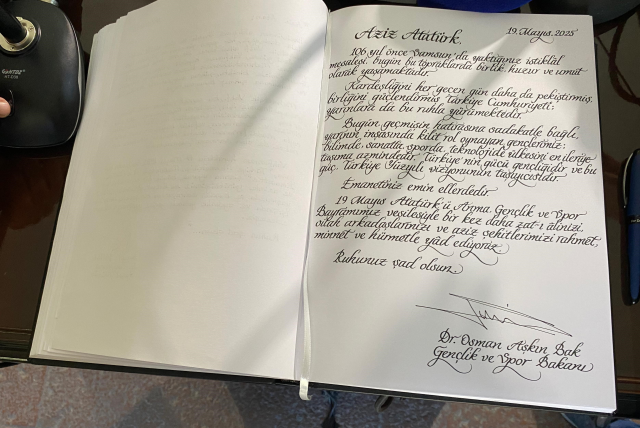 Aziz Atatürk,
19 Mayıs, 2025
106 yıl önce Samsun'da yaktığınız istiklâl
meşalesi, bugün bu topraklarda birlik, huzur ve umut
olarak yaşamaktadır.
Kardeşliğini her geçen gün daha da pekiştirmiş,
birliğini güçlendirmiş Türkiye Cumhuriyeti;
yarınlara da bu ruhla yürümektedir.
Bugün, geçmişin hatırasına sadakatle bağlı,
yarının inşasında kilit rol oynayan gençlerimiz;
bilimde, sanatta, sporda, teknolojide ülkesini en ileriye
taşıma azmindedir. Türkiye'nin gücü gençliğidir, ve bu
güç, Türkiye Yüzyılı vizyonunun taşıyıcısıdır.
Emanetiniz emin ellerdedir.
19 Mayıs Atatürk'ü Anma, Gençlik ve Spor
Bayramımız vesilesiyle bir kez daha zat-ı âlinizi,
silah arkadaşlarınızı ve aziz şehitlerimizi rahmet,
minnet ve hürmetle yâd ediyoruz.
Ruhunuz şad olsun.
Dr. Osman Aşkın Bak
Gençlik ve Spor Bakanı